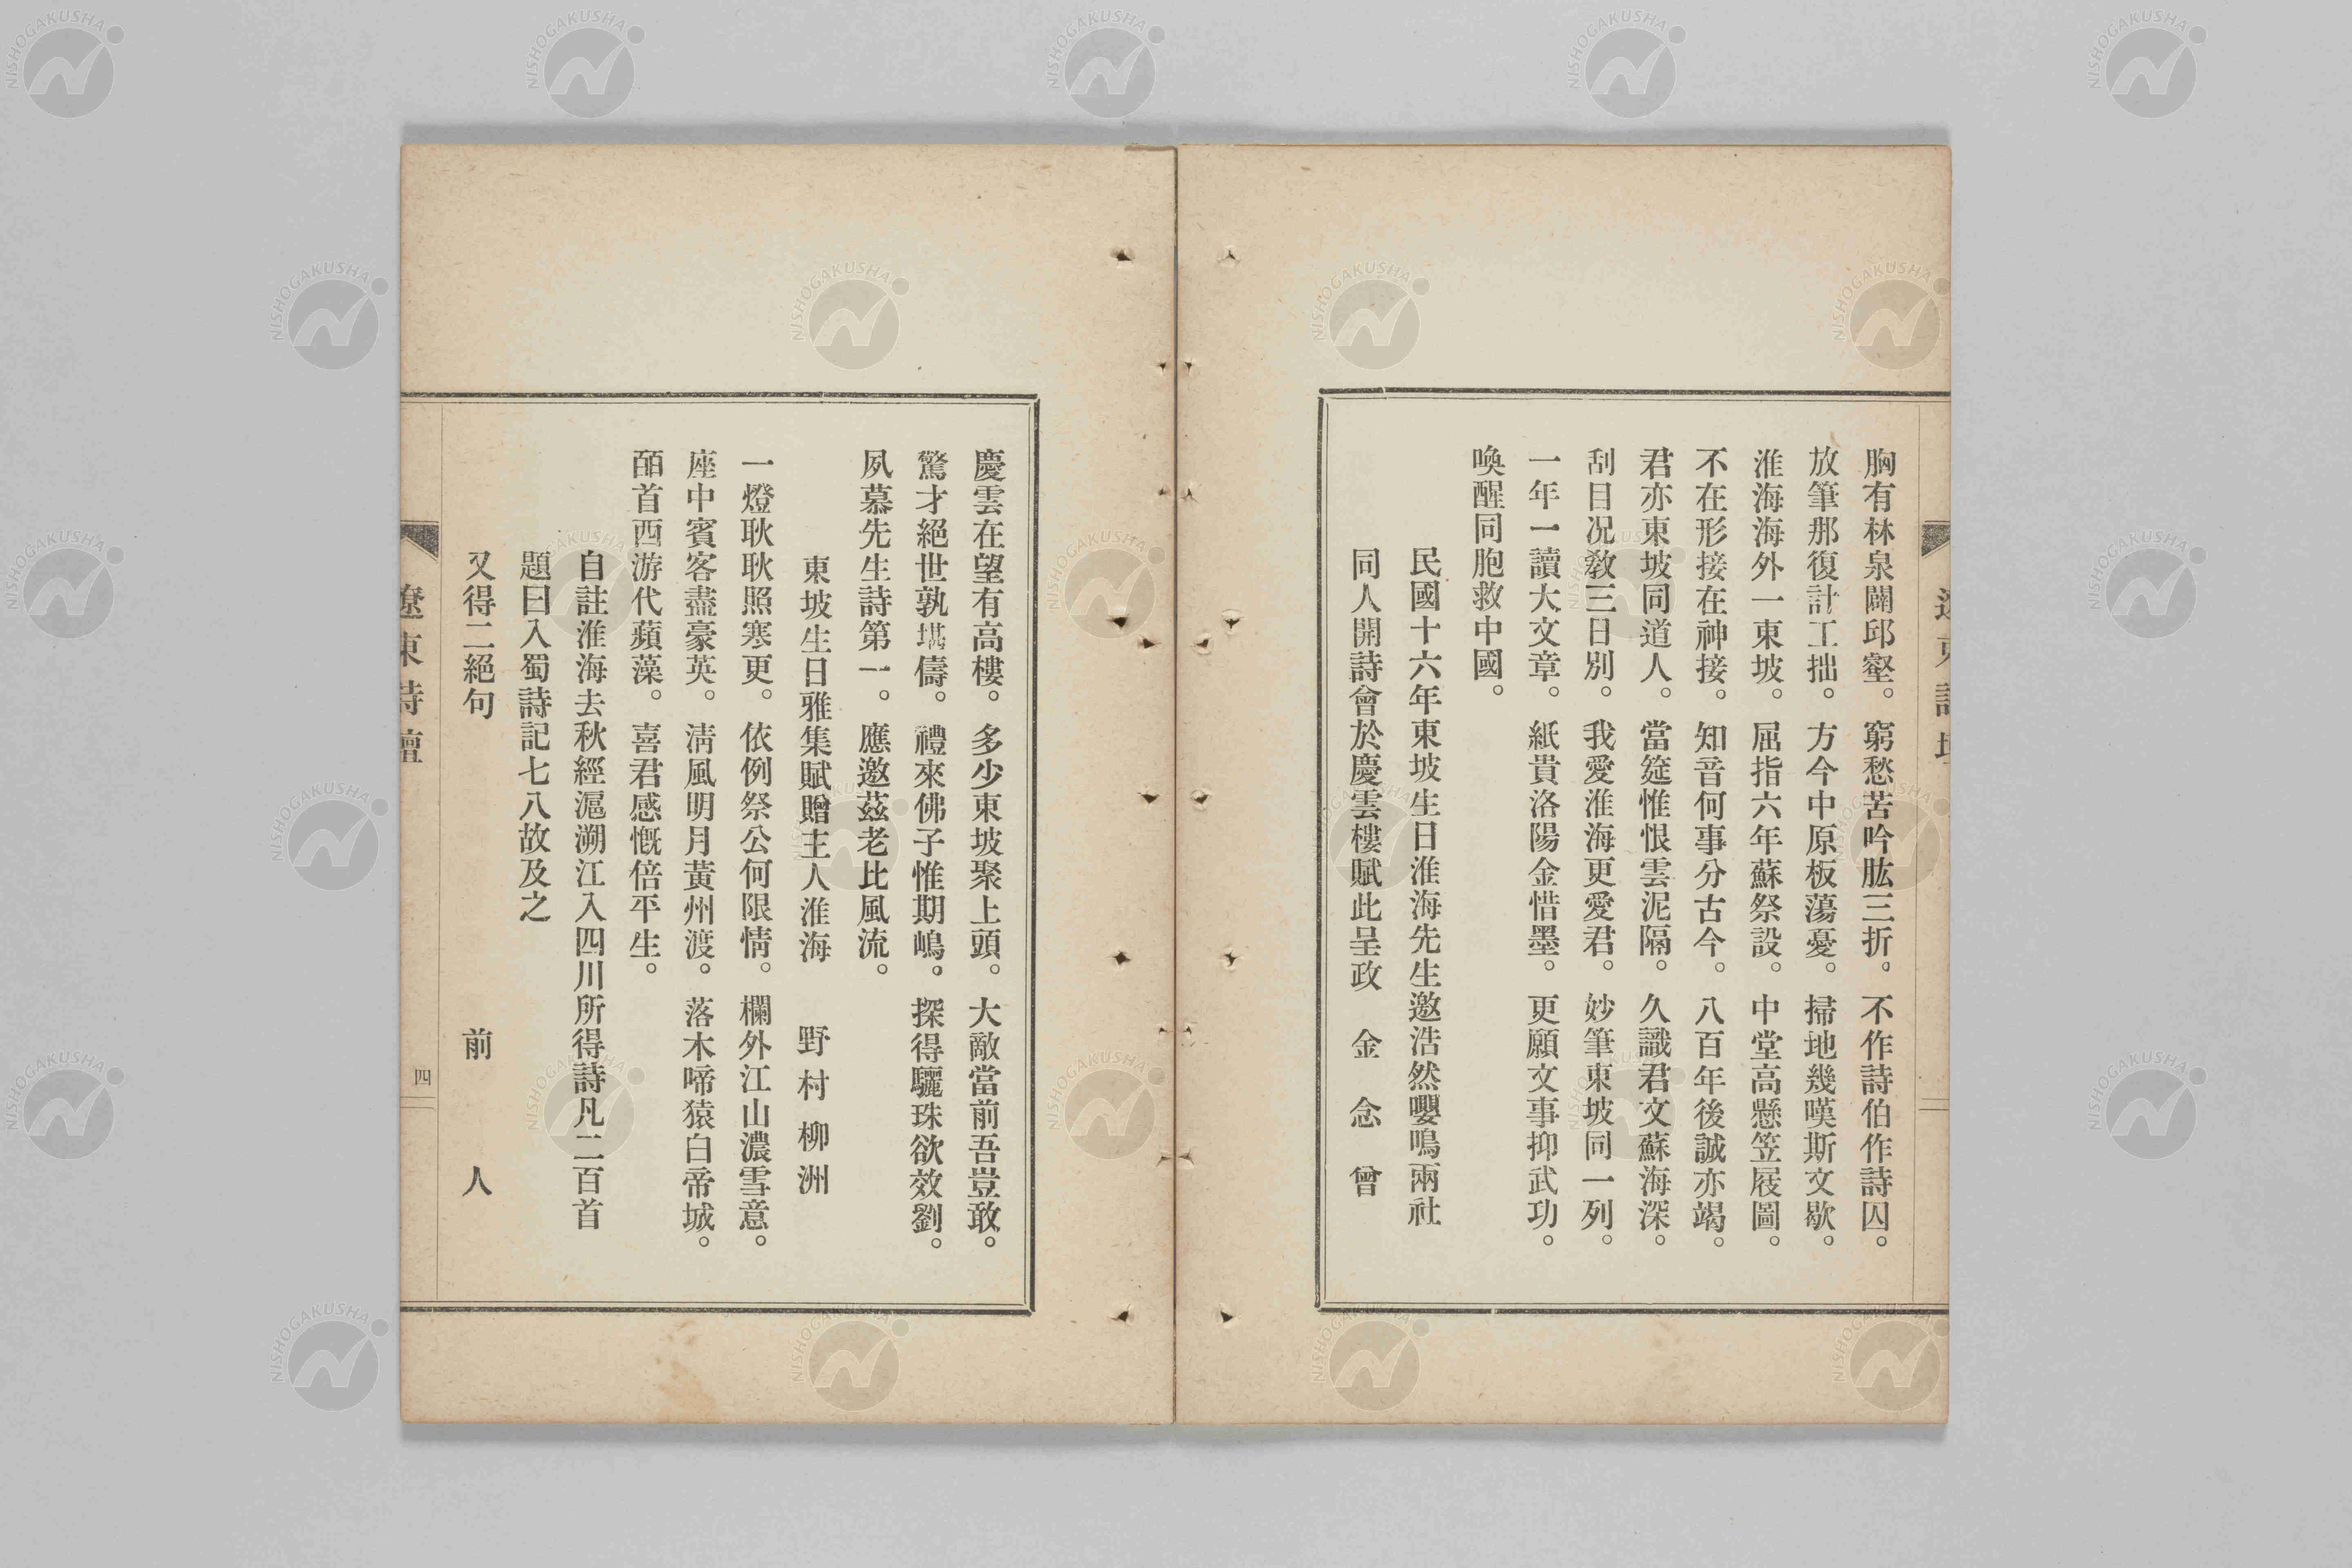 胸有林泉闢邱壑。窮愁苦吟肱三折。不作詩伯作詩囚。
放筆那復計工拙。方今中原板蕩憂。掃地幾嘆斯文歇。
淮海海外一東坡。屈指六年蘇祭設。中堂高懸笠屐圖。
不在形接在神接。知音何事分古今。八百年後誠亦竭。
君亦東坡同道人。當筵惟恨雲泥隔。久識君文蘇海深。
刮目况敎三日別。我愛淮海更愛君。妙筆東坡同一列。
一年一讀大文章。紙貴洛陽金惜墨。更願文事抑武功。
喚醒同胞救中國。
民國十六年東坡生日淮海先生邀浩然嚶鳴兩社
同人開詩會於慶雲樓賦此呈政 金念曾
慶雲在望有高樓。多少東坡聚上頭。大敵當前吾豈敢。
驚才絕世孰堪儔。禮來佛子惟期嶋。探得驪珠欲效劉。
夙慕先生詩第一。應邀茲老比風流。
東坡生日雅集賦贈主人淮海 野村柳洲
一燈耿耿照寒更。依例祭公何限情。欄外江山濃雪意。
座中賓客盡豪英。淸風明月黃州渡。落木啼猿白帝城。
皕首西游代蘋藻。喜君感慨倍平生。
自註淮海去秋經滬溯江入四川所得詩凡二百首
題曰入蜀詩記七八故及之
又得二絕句 前人
遼東詩壇
四
NISHOGAKUSHA